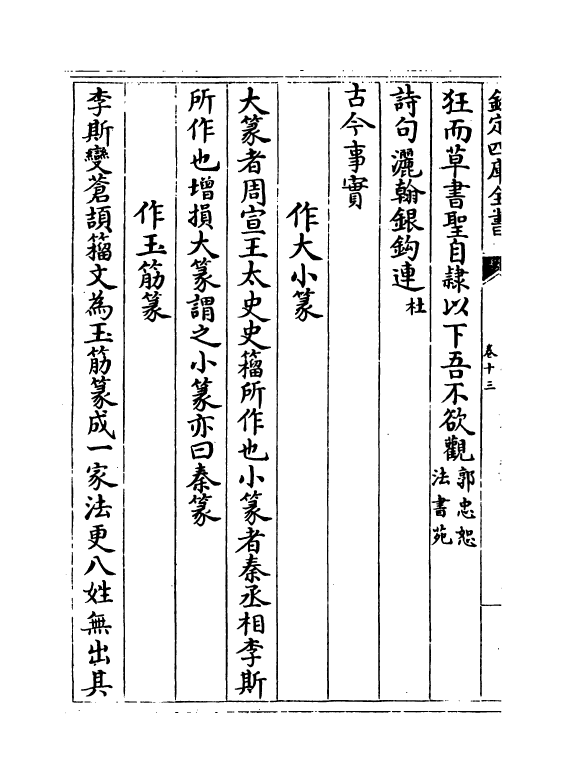 欽定四庫全書
卷十三
狂而草書聖自隷以下吾不欲觀郭忠恕法書苑
詩句灑翰銀鈎連杜
古今事實
作大小篆
大篆者周宣王太史史籀所作也小篆者秦丞相李斯
所作也增損大篆謂之小篆亦曰秦篆
作玉筯篆
李斯變蒼頡籀文為玉筯篆成一家法更八姓無出其